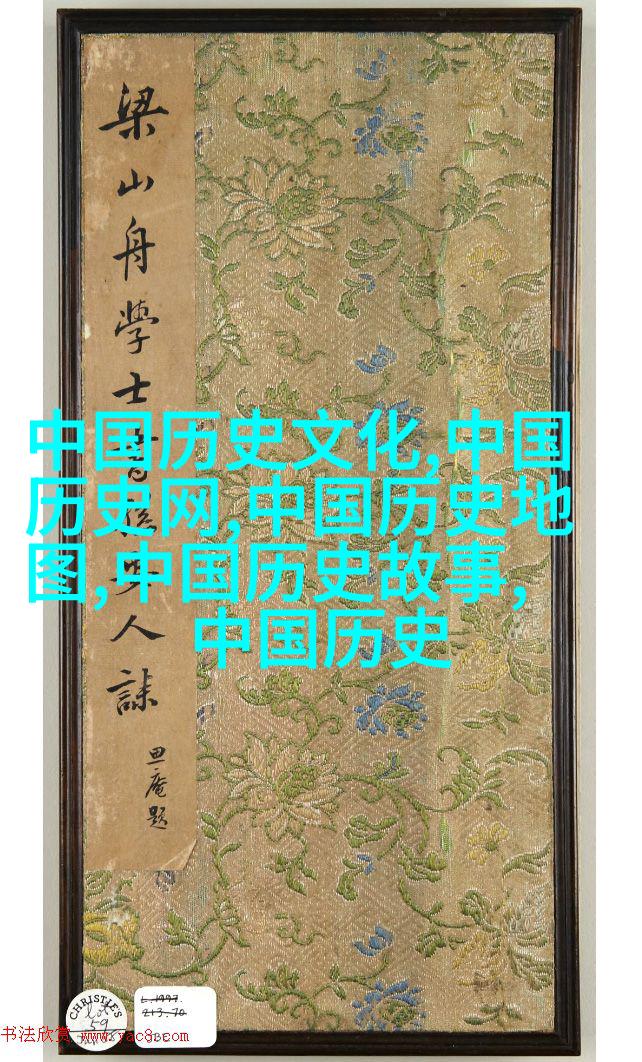 中国历史文化,中国
历史网,中国历史地
图,中国历史故事,
中国历史
梁山舟学士
人誄
思庵题
CHRISTIE'S
Lot
59
L.1997.
213.70
书法欣赏 www.yac8.com